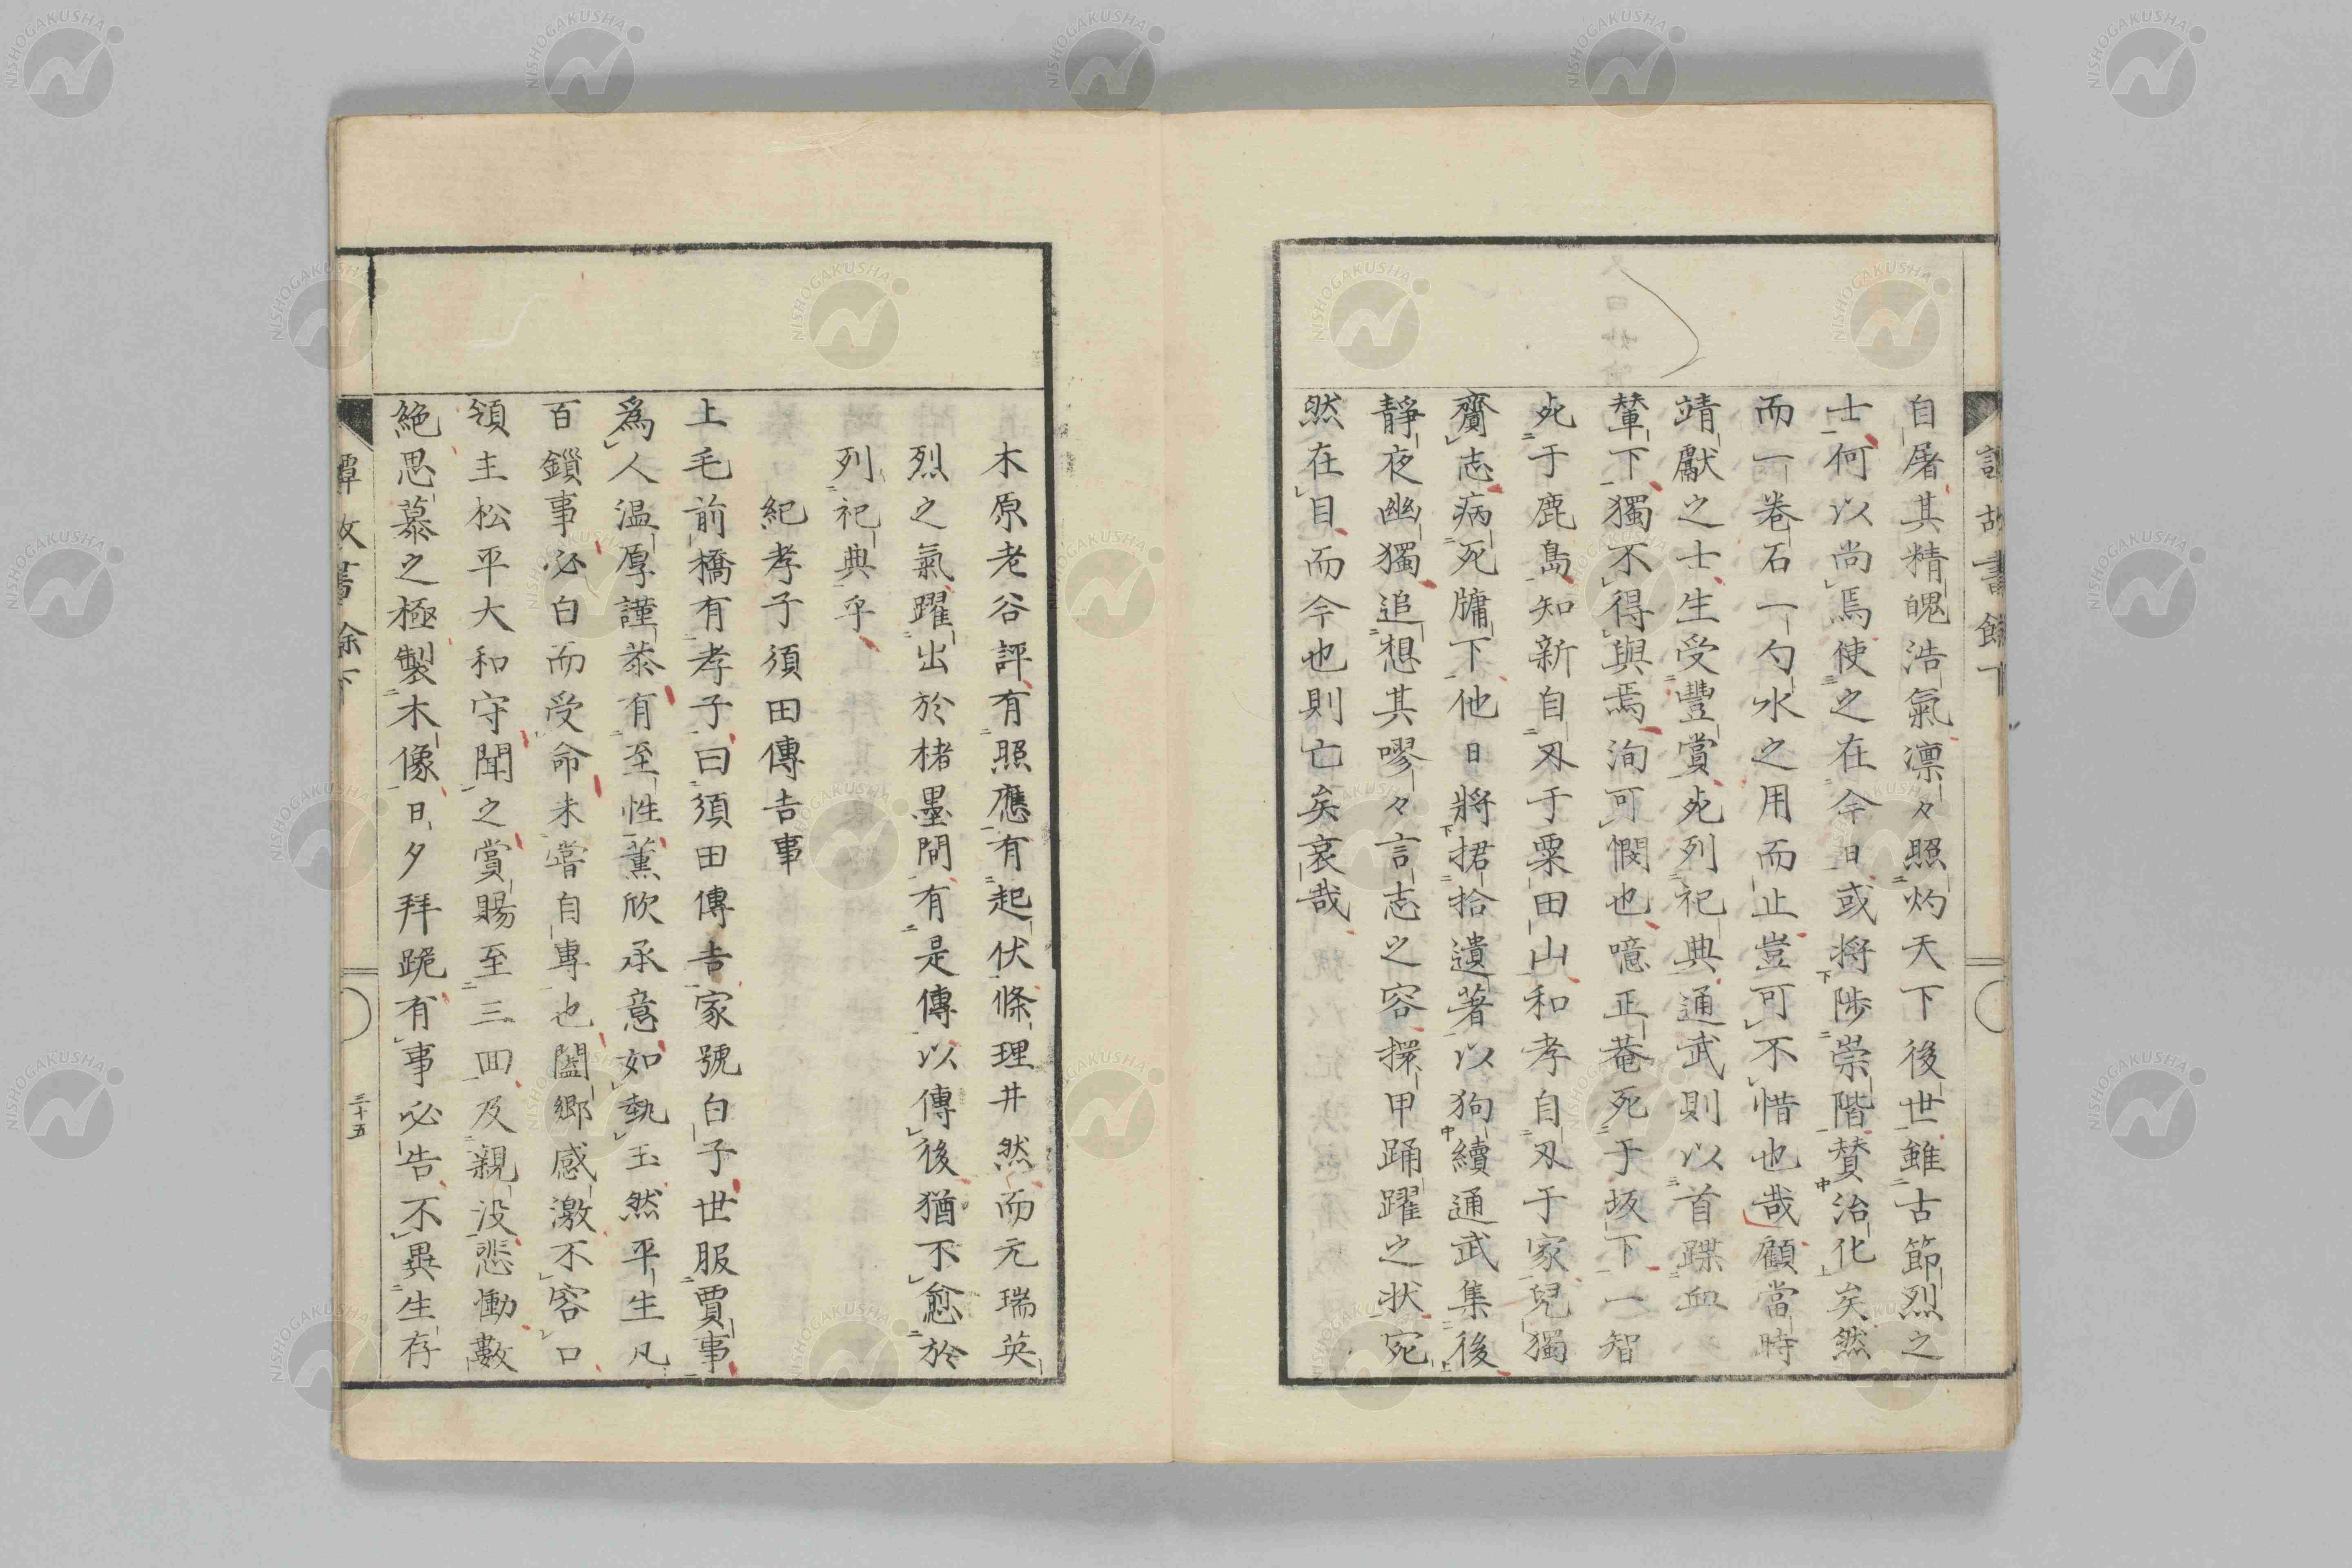 自屠其精魄浩氣凛々照灼天下後世雖古節烈之
士何以尚焉使之在今日或將陟崇階賛治化矣然
而一卷石一勺水之用而止豈可不惜也哉顧當時
靖獻之士生受豐賞死列祀典通武則以首蹀血
輦下獨不得與焉洵可憫也噫正菴死于坂下一智
死于鹿島知新自刄于粟田山和孝自刄于家兒獨
齎志病死牖下他日將捃拾遺著以狗續通武集後
靜夜幽獨追想其嘐々言志之容擐甲踊躍之状宛
然在目而今也則亡矣哀哉
木原老谷評有照應有起伏條理井然而元瑞英
烈之氣躍出於楮墨間有是傳以傳後猶不愈於
列祀典乎
紀孝子須田傳吉事
上毛前橋有孝子曰須田傳吉家號白子世服賈事
爲人温厚謹恭有至性薫欣承意如執玉然平生凡
百鎖事必白而受命未嘗自專也闔郷感激不容口
領主松平大和守聞之賞賜至三四及親没悲慟數
絶思慕之極製木像日夕拜跪有事必告不異生存
譚故書餘下
三十五
NISHOGAKUSHA